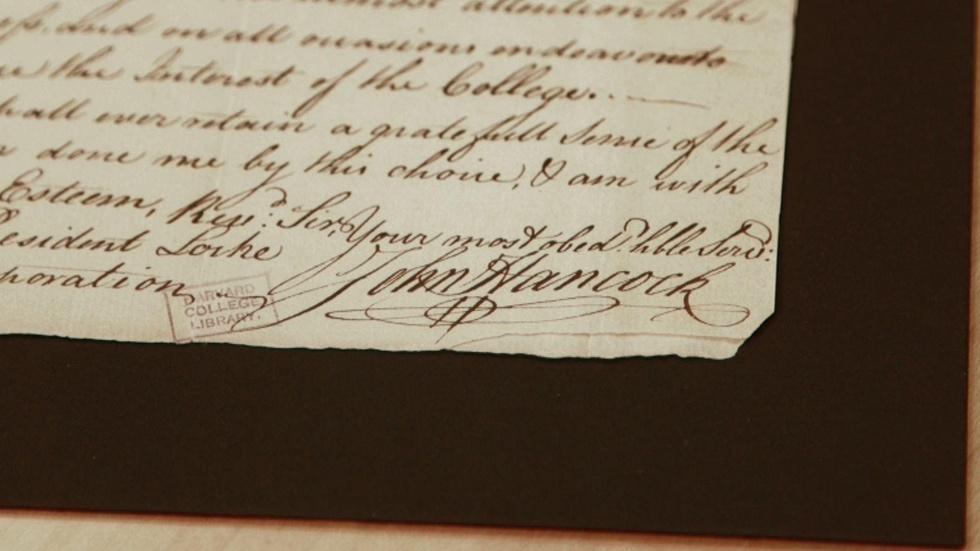 utmost attention to the
And on all occasions endeavour to
the Interest of the College.
shall ever retain a gratefull Sense of the
done me by this choice, & am with
Esteem, Revd: Sir, Your most obedt hble Servt:
President Locke
John Hancock
poration
HARVARD
COLLEGE
LIBRARY.